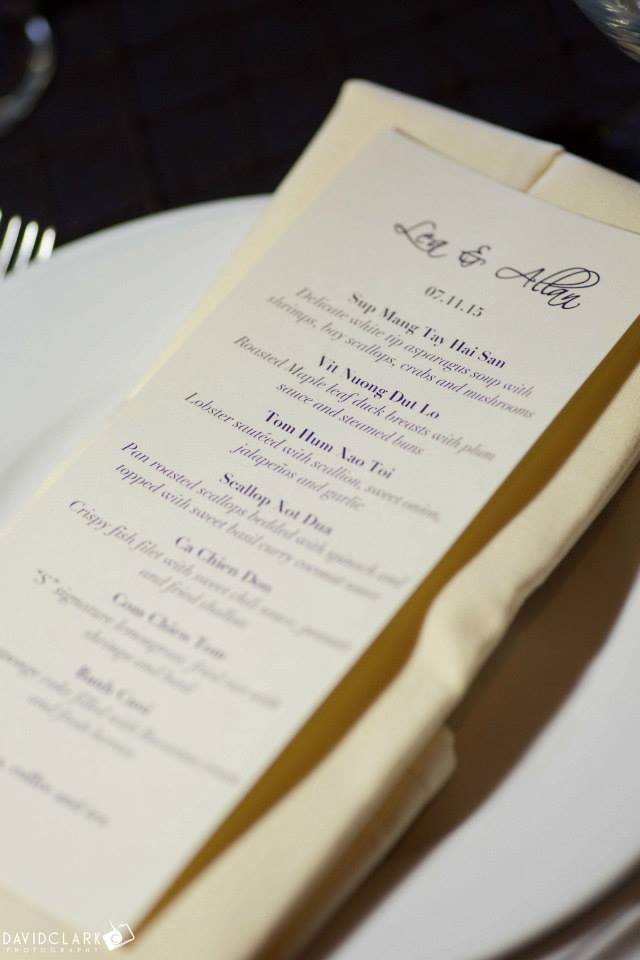 Lea & Allan
07.11.15
Sup Mang Tay Hai San
Delicate white tip asparagus soup with
shrimps, bay scallops, crabs and mushrooms
Vit Nuong Dut Lo
Roasted Maple leaf duck breasts with plum
sauce and steamed buns
Tom Hum Xao Toi
Lobster sautéed with scallion, sweet onion,
jalapeños and garlic
Scallop Not Dua
Pan roasted scallops bedded with spinach and
topped with sweet basil curry coconut water
Ca Chien Don
Crispy fish filet with sweet chili sauce, peanuts
and fried shallots
Com Chien Tom
"S" signature lemongrass fried rice with
shrimps and basil
Banh Cuoi
cake filled with
and fresh berries
coffee and tea
DAVIDCLARK
PHOTOGRAPHY